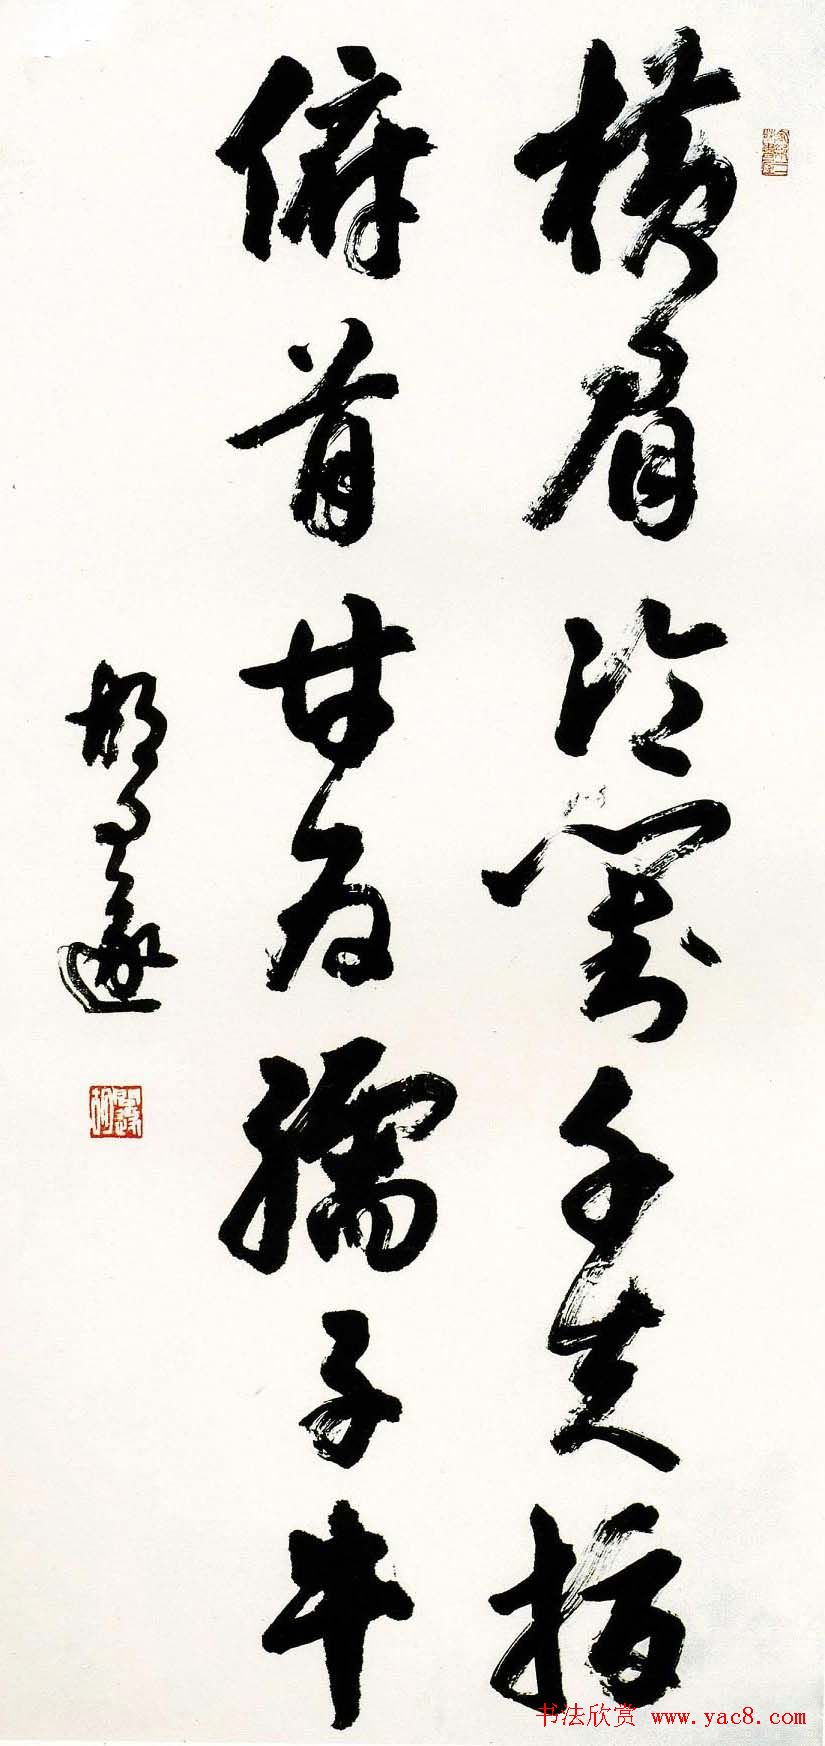 横眉冷對千夫指
俯首甘为孺子牛
胡问遂
书法欣赏 www.yac8.com